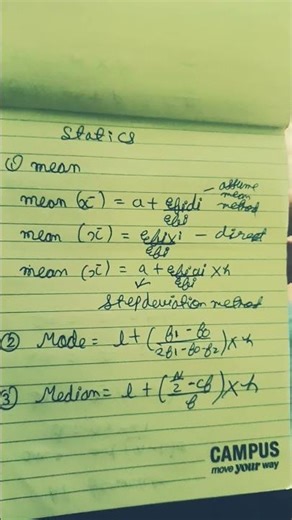 Statics
① mean
mean (x̄) = a + Σfidi/Σfi - assume mean method
mean (x̄) = Σfixi/Σfi - direct
mean (x̄) = a + Σfiai/Σfi × h
Step deviation method
② Mode = l + (f1 - f0 / 2f1 - f0 - f2) × h
③ Median = l + (N/2 - cf / f) × h
CAMPUS
move your way